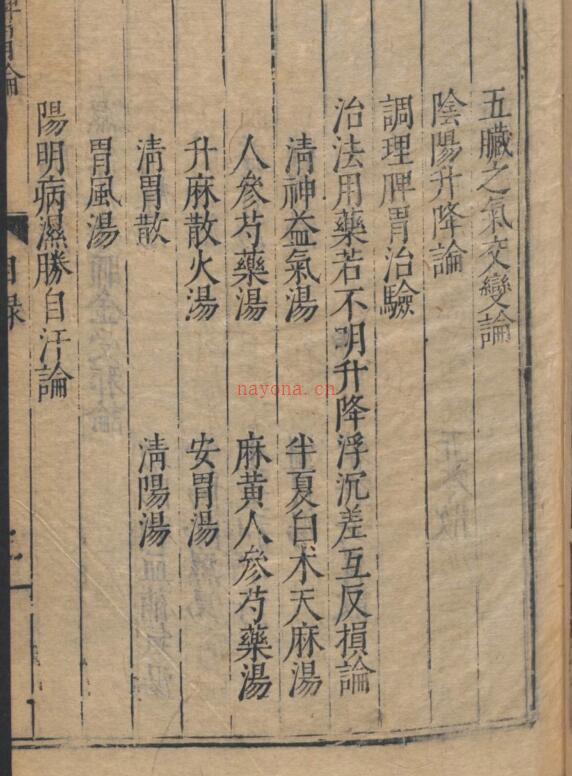 五臟之氣交變論
陰陽升降論
調理脾胃治驗
治法用藥若不明升降浮沉差互反損論
清神益氣湯 半夏白术天麻湯
人參芍藥湯 麻黃人參芍藥湯
升麻散火湯 安胃湯
清胃散 清陽湯
胃風湯
陽明病濕勝自汗論
目錄
脾胃論
nayona.cn